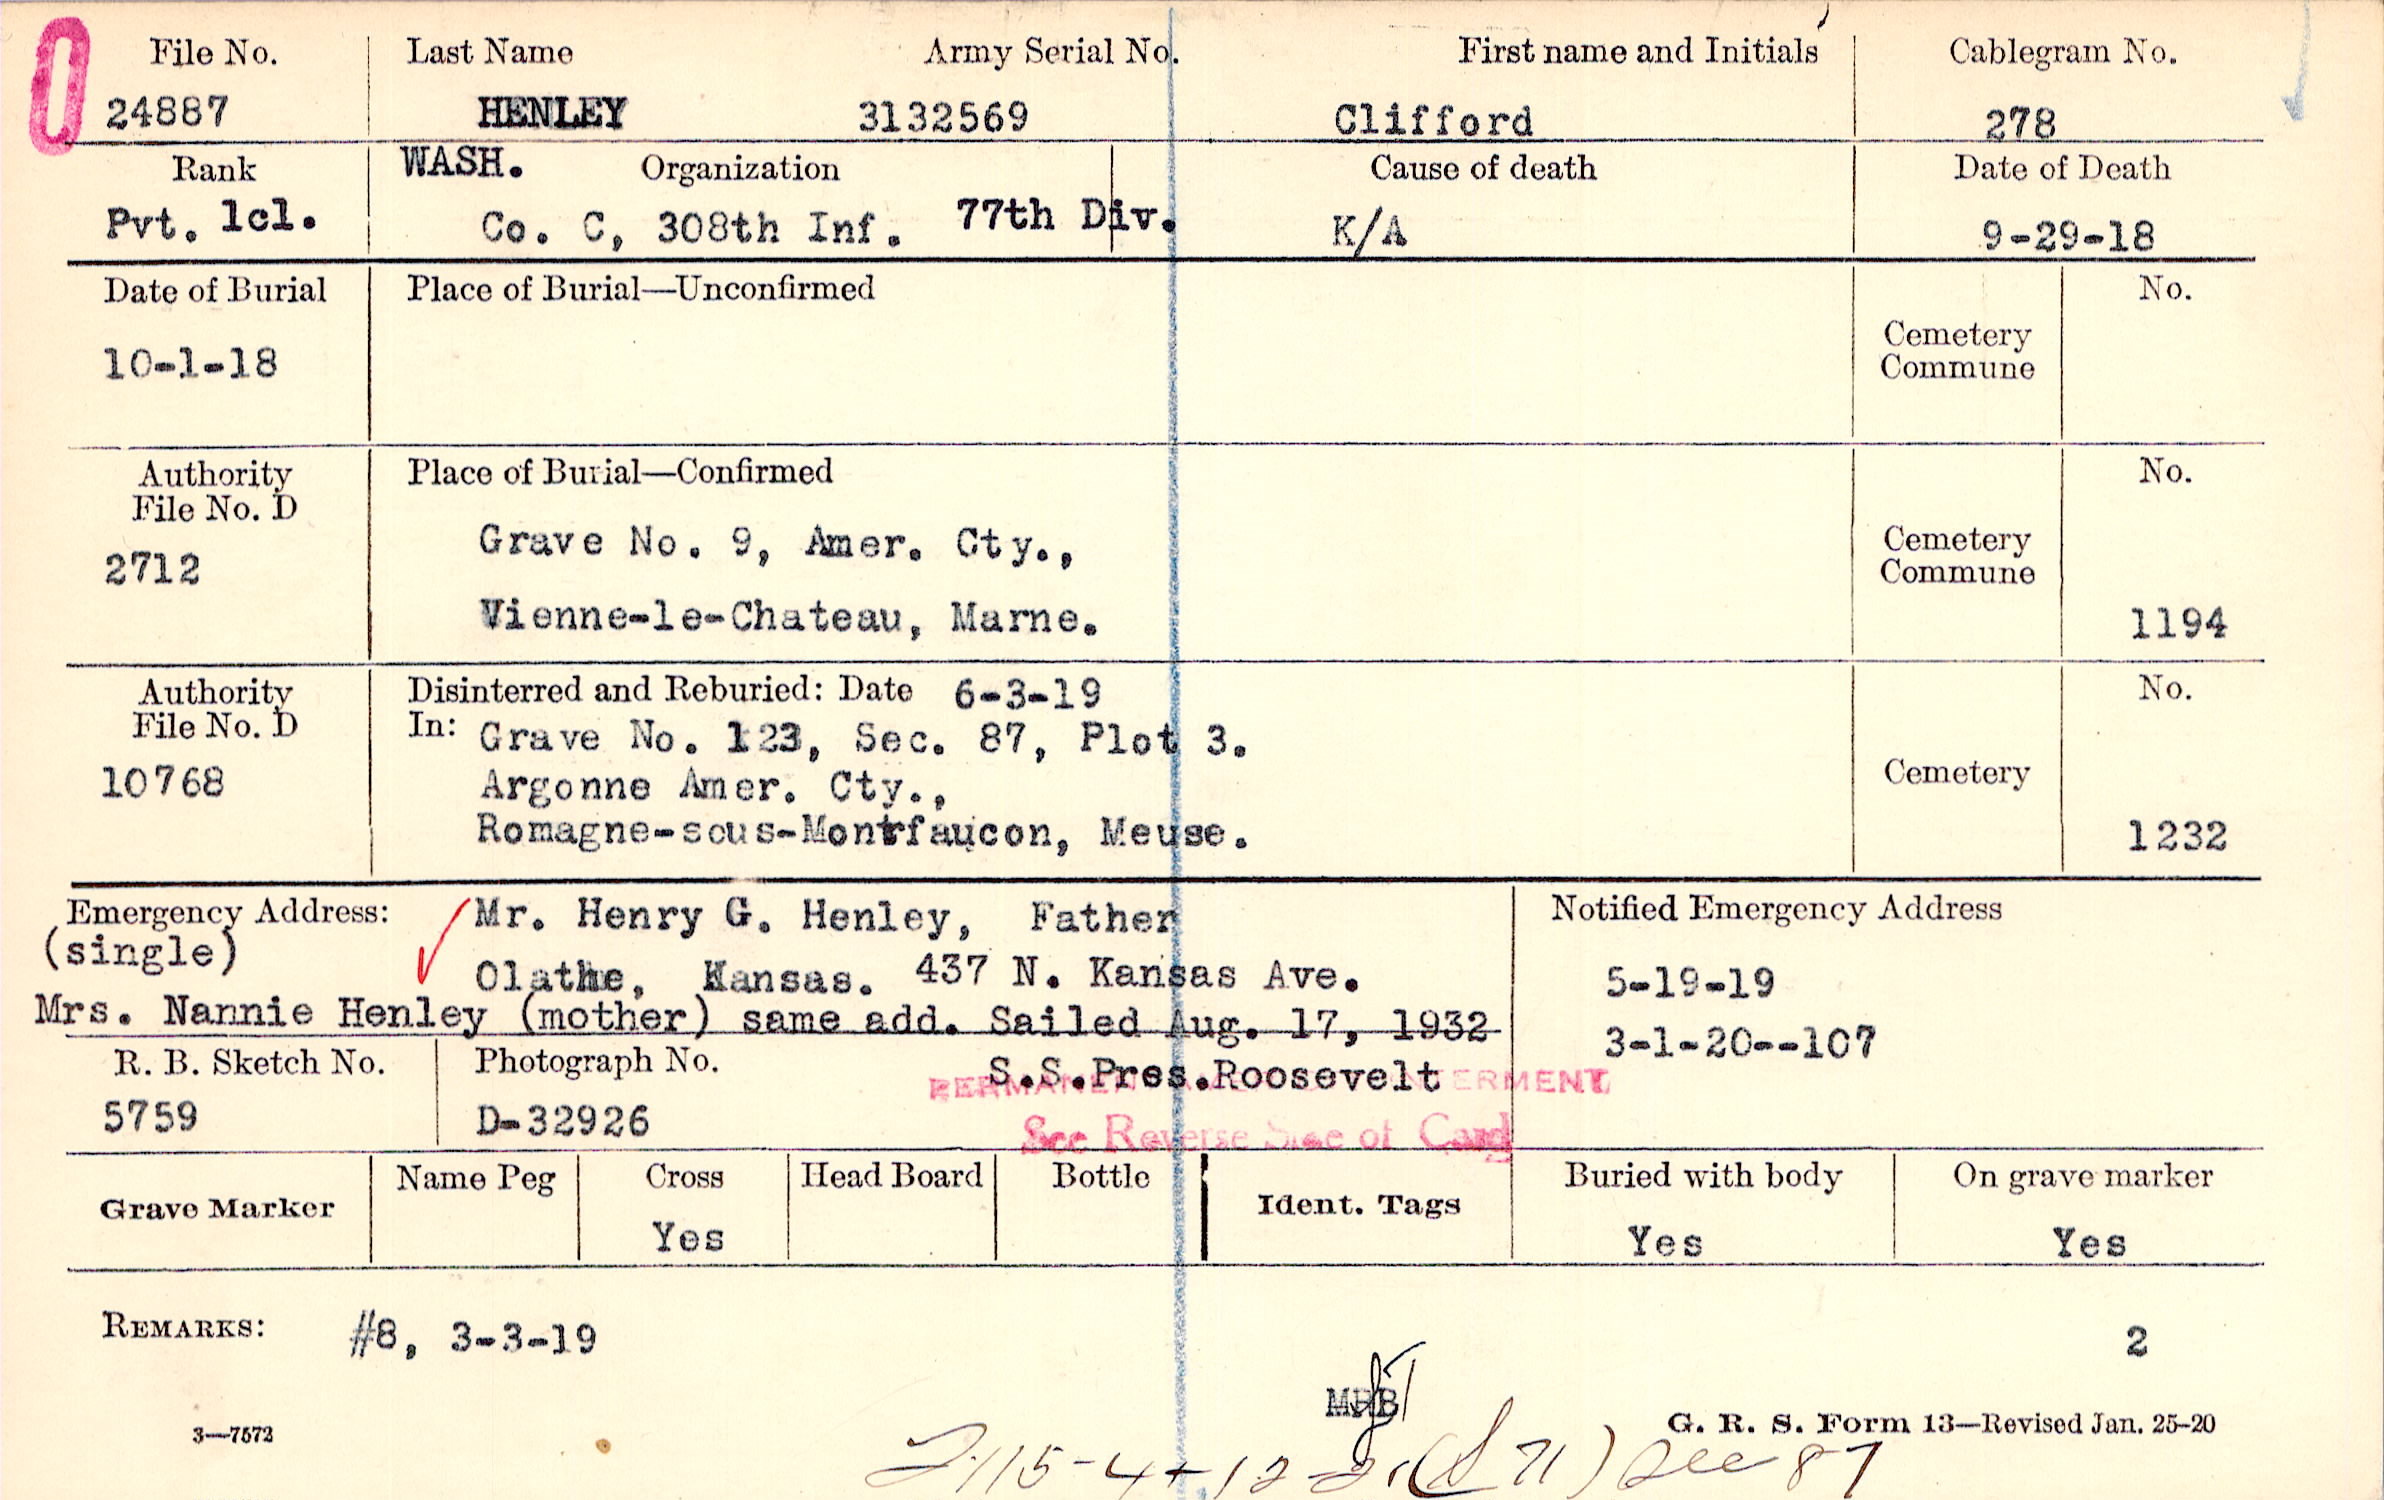 File No. Last Name Army Serial No. First name and Initials Cablegram No.
24887 HENLEY 3132569 Clifford 278
Rank WASH. Organization Cause of death Date of Death
Pvt. 1cl. Co. C, 308th Inf. 77th Div. K/A 9-29-18
Date of Burial Place of Burial—Unconfirmed No.
10-1-18
Cemetery
Commune
Authority Place of Burial—Confirmed No.
File No. D
2712
Grave No. 9, Amer. Cty.,
Vienne-le-Chateau, Marne.
Cemetery
Commune
1194
Authority Disinterred and Reburied: Date 6-3-19 No.
File No. D In: Grave No. 123, Sec. 87, Plot 3.
10768 Argonne Amer. Cty., Cemetery
Romagne-sous-Montfaucon, Meuse. 1232
Emergency Address: Mr. Henry G. Henley, Father Notified Emergency Address
(single) Olathe, Kansas. 437 N. Kansas Ave. 5-19-19
Mrs. Nannie Henley (mother) same add. Sailed Aug. 17, 1932 3-1-20--107
R. B. Sketch No. Photograph No. S.S.Pres.Roosevelt
5759 D-32926
See Reverse Side of Card
Grave Marker Name Peg Cross Head Board Bottle Ident. Tags Buried with body On grave marker
Yes Yes Yes
REMARKS: #8, 3-3-19 2
3—7572 G. R. S. Form 13—Revised Jan. 25-20